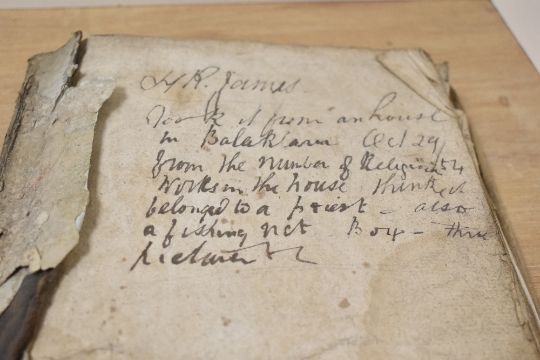 H R. James
Took it from an house
in Balaklava Oct 29
from the number of Religious
Works in the house think it
belonged to a priest - also
a fishing net Box - three
pictures